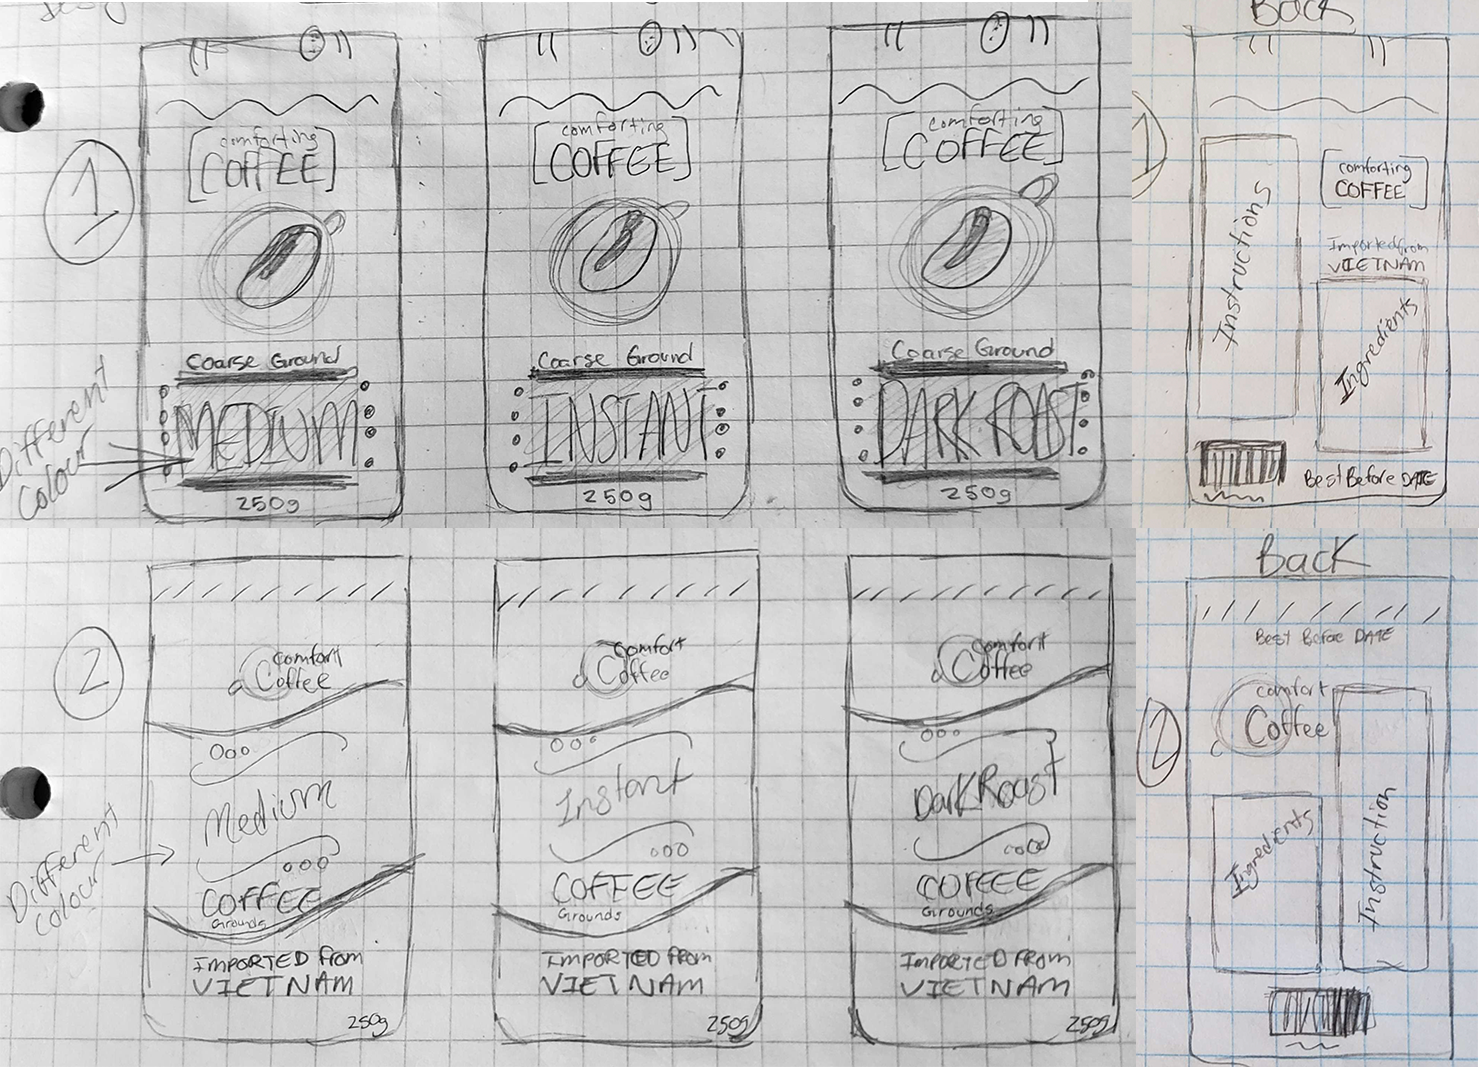 Back
1
comforting
COFFEE
Coarse Ground
MEDIUM
250g
Different
Colour
comforting
COFFEE
Coarse Ground
INSTANT
250g
comforting
COFFEE
Coarse Ground
DARK ROAST
250g
1
Instructions
comforting
COFFEE
Imported from
VIETNAM
Ingredients
Best Before DATE
2
comfort
Coffee
Medium
COFFEE
Grounds
IMPORTED from
VIETNAM
250g
Different
colour
Comfort
Coffee
Instant
COFFEE
Grounds
IMPORTED from
VIETNAM
250g
Comfort
Coffee
Dark Roast
COFEEE
Grounds
IMPORTED from
VIETNAM
250g
Back
2
Best Before DATE
comfort
Coffee
Ingredients
Instruction